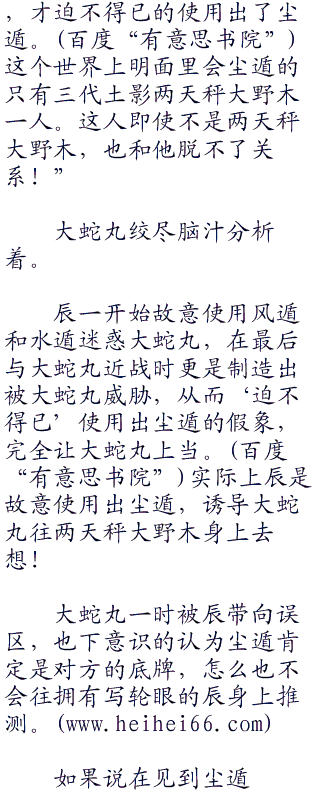 ，才迫不得已的使用出了尘
遁。(百度“有意思书院”)
这个世界上明面里会尘遁的
只有三代土影两天秤大野木
一人。这人即使不是两天秤
大野木，也和他脱不了关
系！”
大蛇丸绞尽脑汁分析
着。
辰一开始故意使用风遁
和水遁迷惑大蛇丸，在最后
与大蛇丸近战时更是制造出
被大蛇丸威胁，从而‘迫不
得已’使用出尘遁的假象，
完全让大蛇丸上当。(百度
“有意思书院”)实际上辰是
故意使用出尘遁，诱导大蛇
丸往两天秤大野木身上去
想！
大蛇丸一时被辰带向误
区，也下意识的认为尘遁肯
定是对方的底牌，怎么也不
会往拥有写轮眼的辰身上推
测。(www.heihei66.com)
如果说在见到尘遁